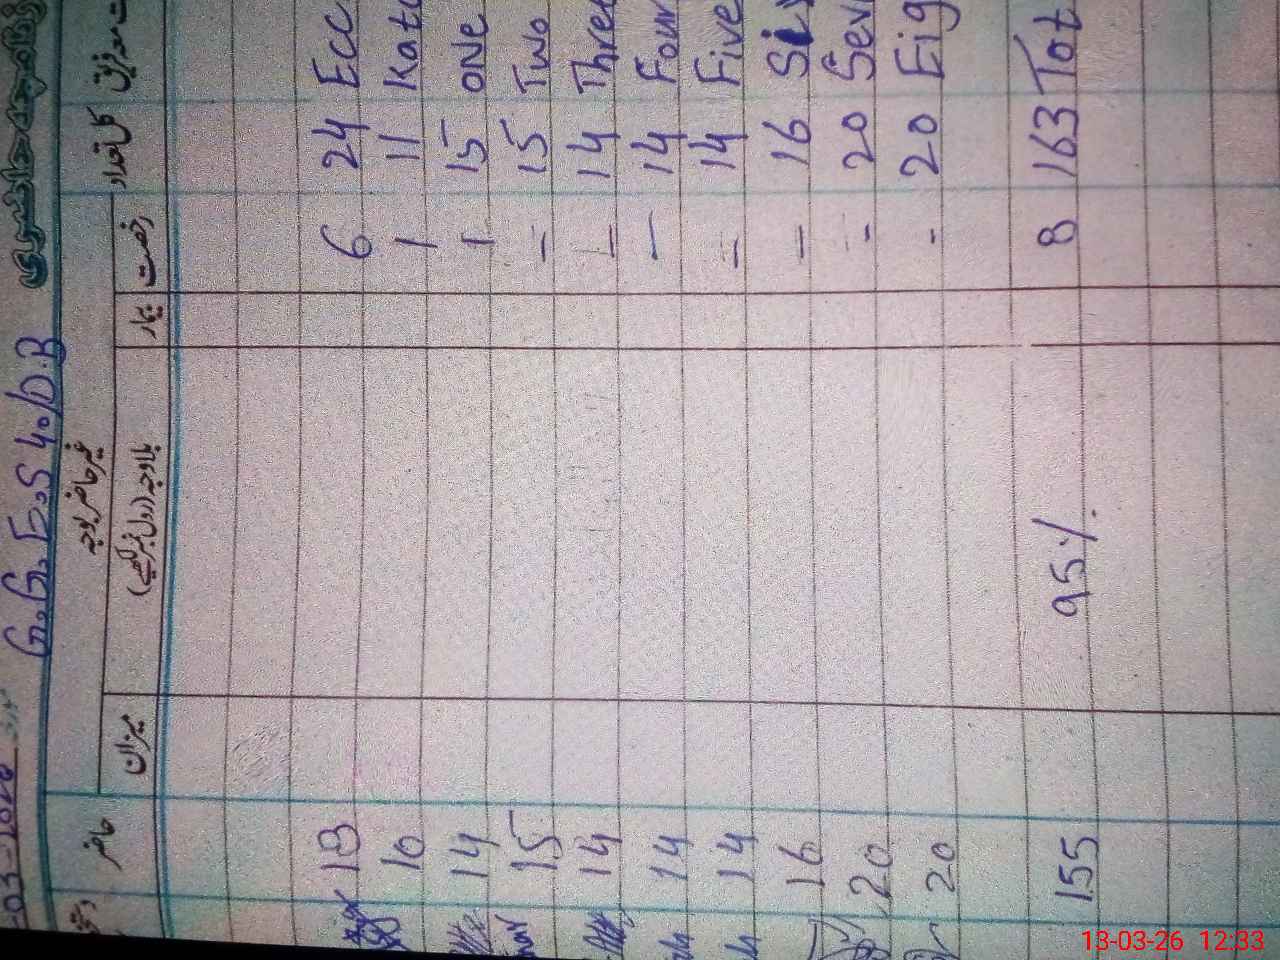 G.G.E.S 40/D.B
کل تعداد رخصت بیمار غیر حاضر بوجہ میزان حاضر
بلاوجہ (رول نمبر لکھیے)
Ecc 24 6 18
11 1 10
ONe 15 1 14
Two 15 = 15
Three 14 = 14
Four 14 — 14
Five 14 = 14
Six 16 = 16
Sev 20 = 20
Eig 20 - 20
Tot 163 8 95% 155
13-03-26 12:33